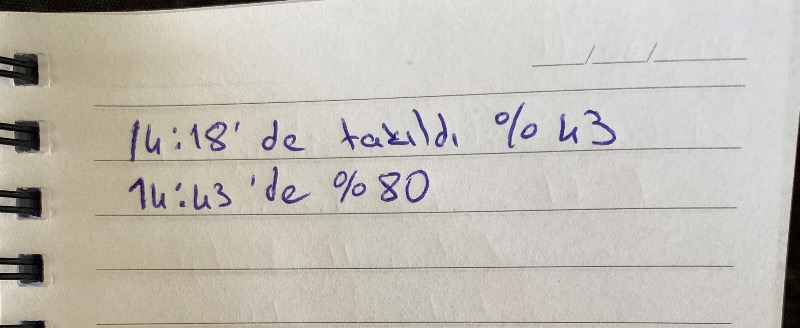 14:18'de takıldı %43
14:43'de %80